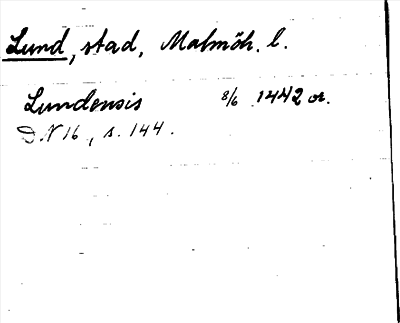 Lund, stad, Malmöh. l.
Lundensis 8/6 1442 or.
D.N 16, s. 144.